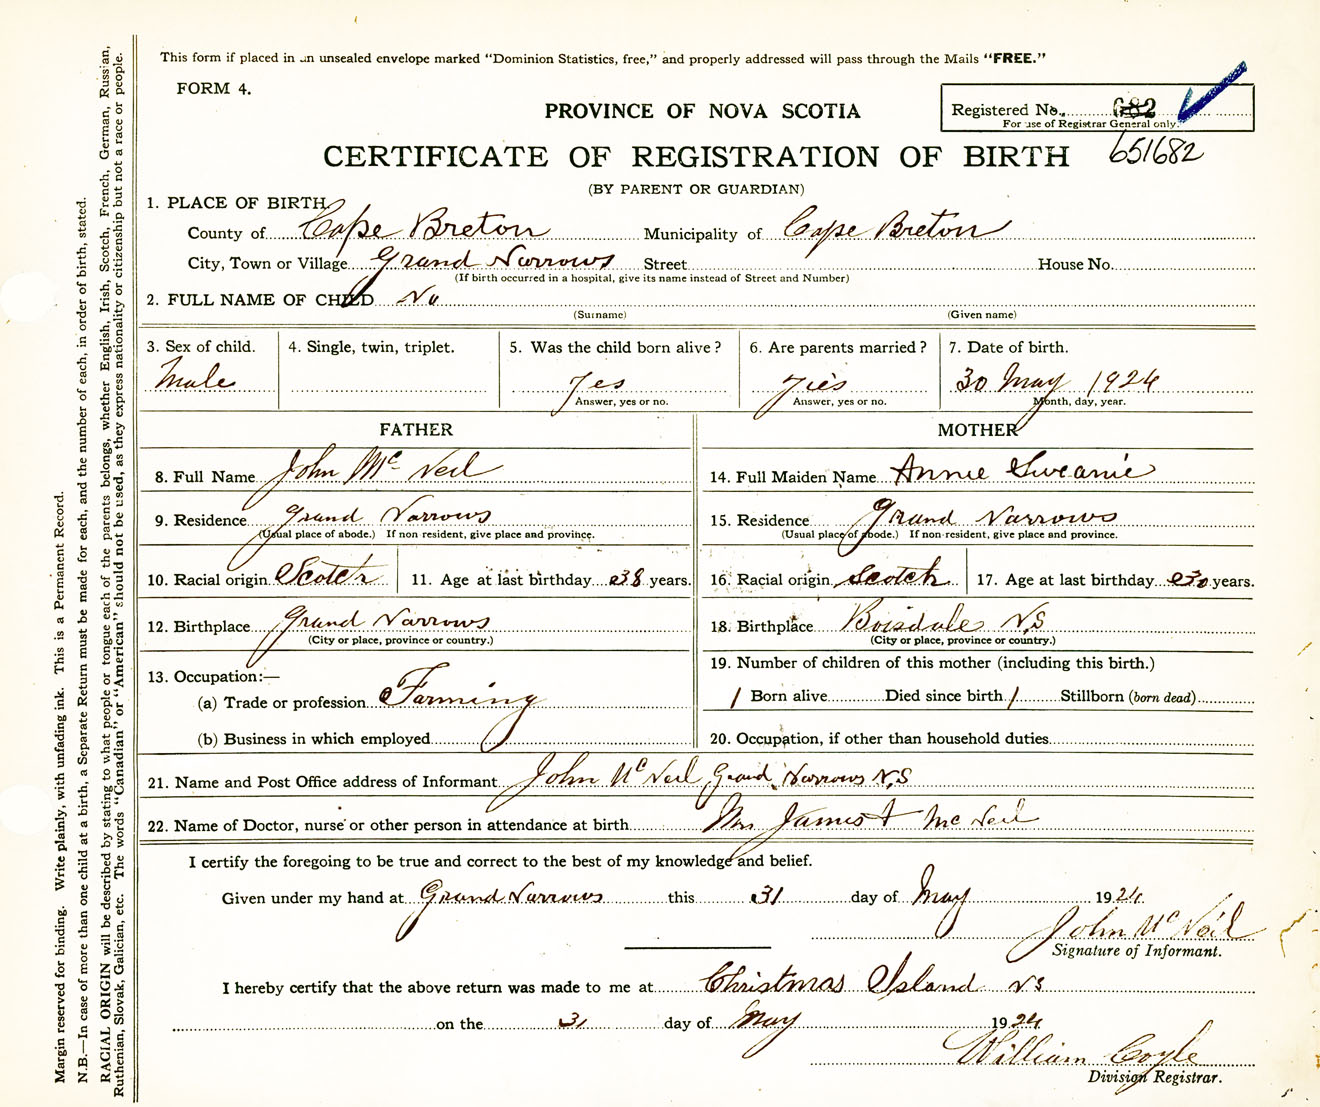 This form if placed in an unsealed envelope marked "Dominion Statistics, free," and properly addressed will pass through the Mails "FREE."
FORM 4.
PROVINCE OF NOVA SCOTIA
Registered No. 682
For use of Registrar General only.
651682
CERTIFICATE OF REGISTRATION OF BIRTH
(BY PARENT OR GUARDIAN)
1. PLACE OF BIRTH
County of Cape Breton Municipality of Cape Breton
City, Town or Village Grand Narrows Street House No.
(If birth occurred in a hospital, give its name instead of Street and Number)
2. FULL NAME OF CHILD No
(Surname) (Given name)
3. Sex of child. 4. Single, twin, triplet. 5. Was the child born alive? 6. Are parents married? 7. Date of birth.
Male Yes Yes 30 May 1924
Answer, yes or no. Answer, yes or no. Month, day, year.
FATHER MOTHER
8. Full Name John Mc Neil 14. Full Maiden Name Annie
9. Residence Grand Narrows 15. Residence Grand Narrows
(Usual place of abode.) If non resident, give place and province. (Usual place of abode.) If non-resident, give place and province.
10. Racial origin Scotch 11. Age at last birthday 38 years. 16. Racial origin Scotch 17. Age at last birthday 30 years.
12. Birthplace Grand Narrows 18. Birthplace Boisdale N.S
(City or place, province or country.) (City or place, province or country.)
13. Occupation:— 19. Number of children of this mother (including this birth.)
(a) Trade or profession Farming 1 Born alive Died since birth 1 Stillborn (born dead)
(b) Business in which employed 20. Occupation, if other than household duties
21. Name and Post Office address of Informant John Mc Neil Grand Narrows N.S
22. Name of Doctor, nurse or other person in attendance at birth Mrs James Mc Neil
I certify the foregoing to be true and correct to the best of my knowledge and belief.
Given under my hand at Grand Narrows this 31 day of May 1924
John Mc Neil
Signature of Informant.
I hereby certify that the above return was made to me at Christmas Island NS
on the 31 day of May 1924
William Coyle
Division Registrar.
Margin reserved for binding. Write plainly, with unfading ink. This is a Permanent Record.
N.B.—In case of more than one child at a birth, a Separate Return must be made for each, and the number of each, in order of birth, stated.
RACIAL ORIGIN will be described by stating to what people or tongue each of the parents belongs, whether English, Irish, Scotch, French, German, Russian,
Ruthenian, Slovak, Galician, etc. The words "Canadian" or "American" should not be used, as they express nationality or citizenship but not a race or people.